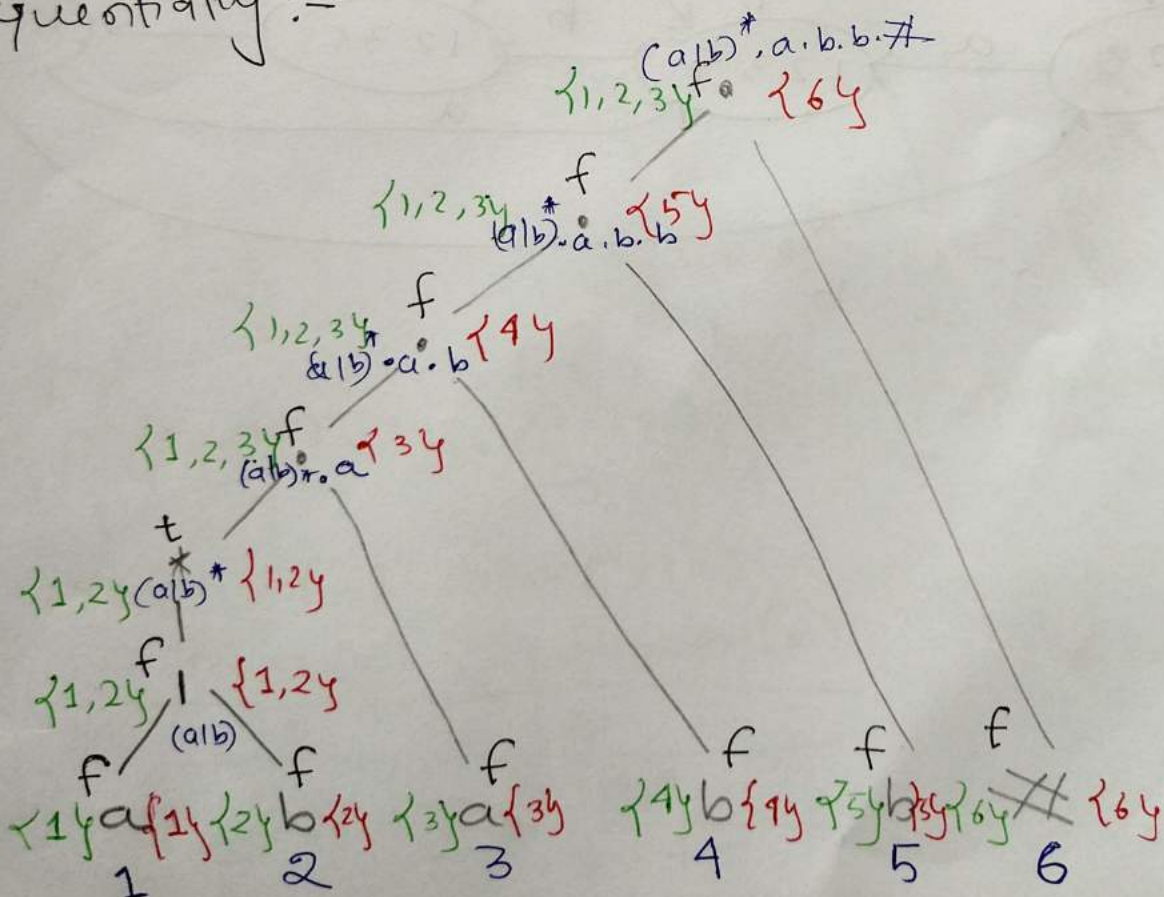 quentially :-
(a|b)*.a.b.b.#
{1,2,3} f . {6}
f
{1,2,3} . {5}
(a|b)*.a.b.b
f
{1,2,3} . {4}
(a|b)*.a.b
f
{1,2,3} . {3}
(a|b)*.a
t
*
{1,2} (a|b)* {1,2}
f
{1,2} | {1,2}
(a|b)
f f f f f f
{1} a {1} {2} b {2} {3} a {3} {4} b {4} {5} b {5} {6} # {6}
1 2 3 4 5 6